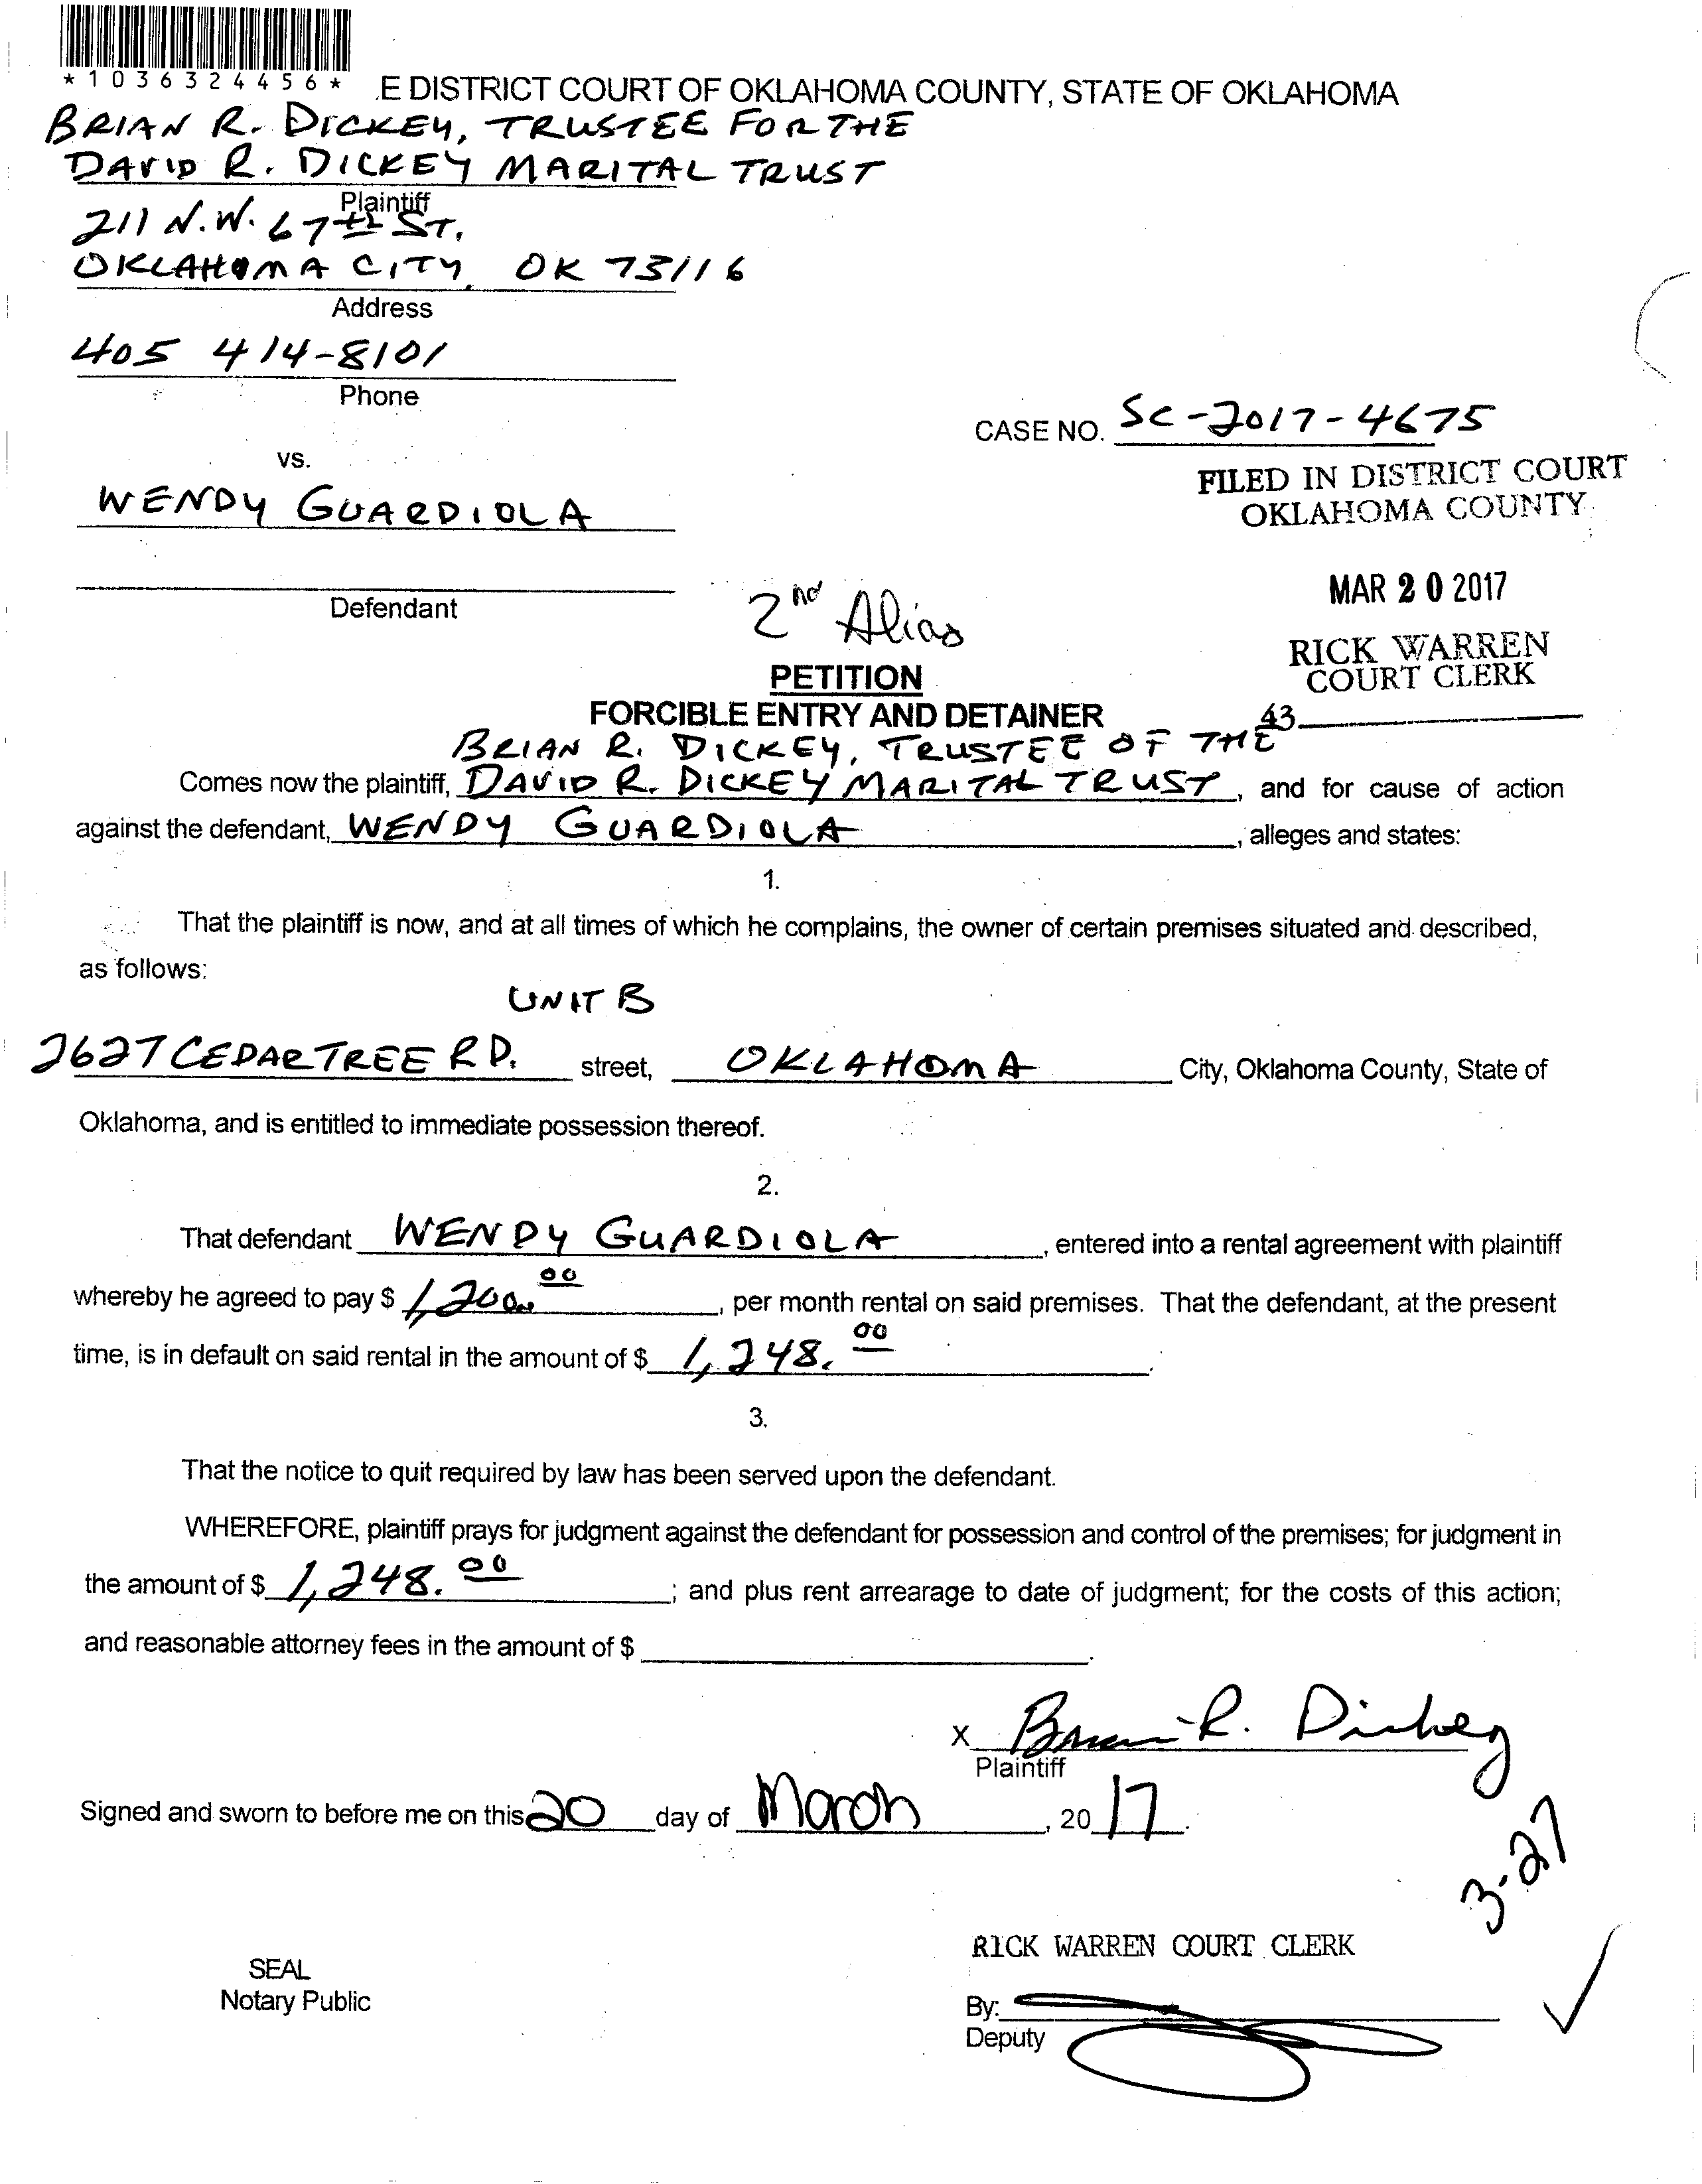 *1036324456*
E DISTRICT COURT OF OKLAHOMA COUNTY, STATE OF OKLAHOMA
BRIAN R. DICKEY, TRUSTEE FOR THE
DAVID R. DICKEY MARITAL TRUST
Plaintiff
211 N.W. 67th ST.
OKLAHOMA CITY, OK 73116
Address
405 414-8101
Phone
CASE NO. SC-2017-4675
vs.
FILED IN DISTRICT COURT
OKLAHOMA COUNTY
WENDY GUARDIOLA
MAR 20 2017
Defendant
2nd Alias
RICK WARREN
COURT CLERK
PETITION
FORCIBLE ENTRY AND DETAINER
43
BRIAN R. DICKEY, TRUSTEE OF THE
Comes now the plaintiff, DAVID R. DICKEY MARITAL TRUST, and for cause of action
against the defendant, WENDY GUARDIOLA, alleges and states:
1.
That the plaintiff is now, and at all times of which he complains, the owner of certain premises situated and described,
as follows:
UNIT B
2627 CEDAR TREE RD. street, OKLAHOMA City, Oklahoma County, State of
Oklahoma, and is entitled to immediate possession thereof.
2.
That defendant WENDY GUARDIOLA, entered into a rental agreement with plaintiff
whereby he agreed to pay $ 1,200.00, per month rental on said premises. That the defendant, at the present
time, is in default on said rental in the amount of $ 1,248.00.
3.
That the notice to quit required by law has been served upon the defendant.
WHEREFORE, plaintiff prays for judgment against the defendant for possession and control of the premises; for judgment in
the amount of $ 1,248.00; and plus rent arrearage to date of judgment; for the costs of this action;
and reasonable attorney fees in the amount of $ .
X Brian R. Dickey
Plaintiff
Signed and sworn to before me on this 20 day of March, 2017.
3-27
RICK WARREN COURT CLERK
SEAL
Notary Public
By:
Deputy